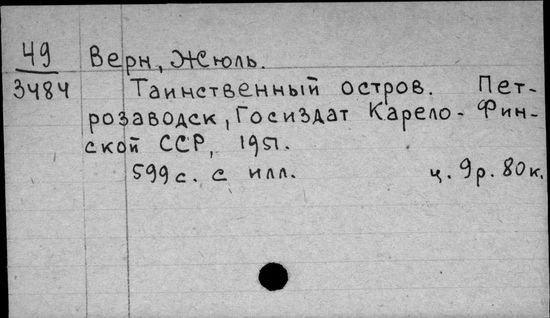 49 Верн, Жюль.
3484 Таинственный остров. Пет-
розаводск, Госиздат Карело-Фин-
ской ССР, 1951.
599с. с илл. ц. 9р. 80к.